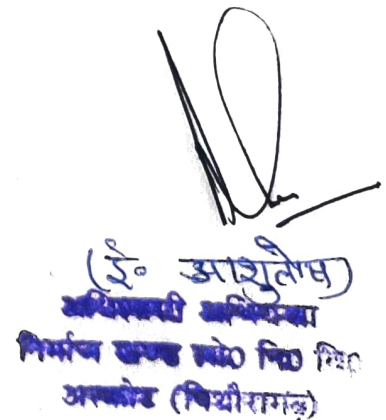 (ई० आशुतोष)
अधिशासी अभियन्ता
निर्माण खण्ड लो० नि० वि०
अस्कोट (पिथौरागढ़)